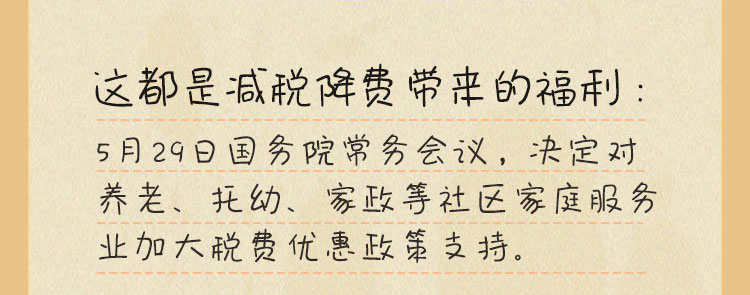 这都是减税降费带来的福利：
5月29日国务院常务会议，决定对
养老、托幼、家政等社区家庭服务
业加大税费优惠政策支持。